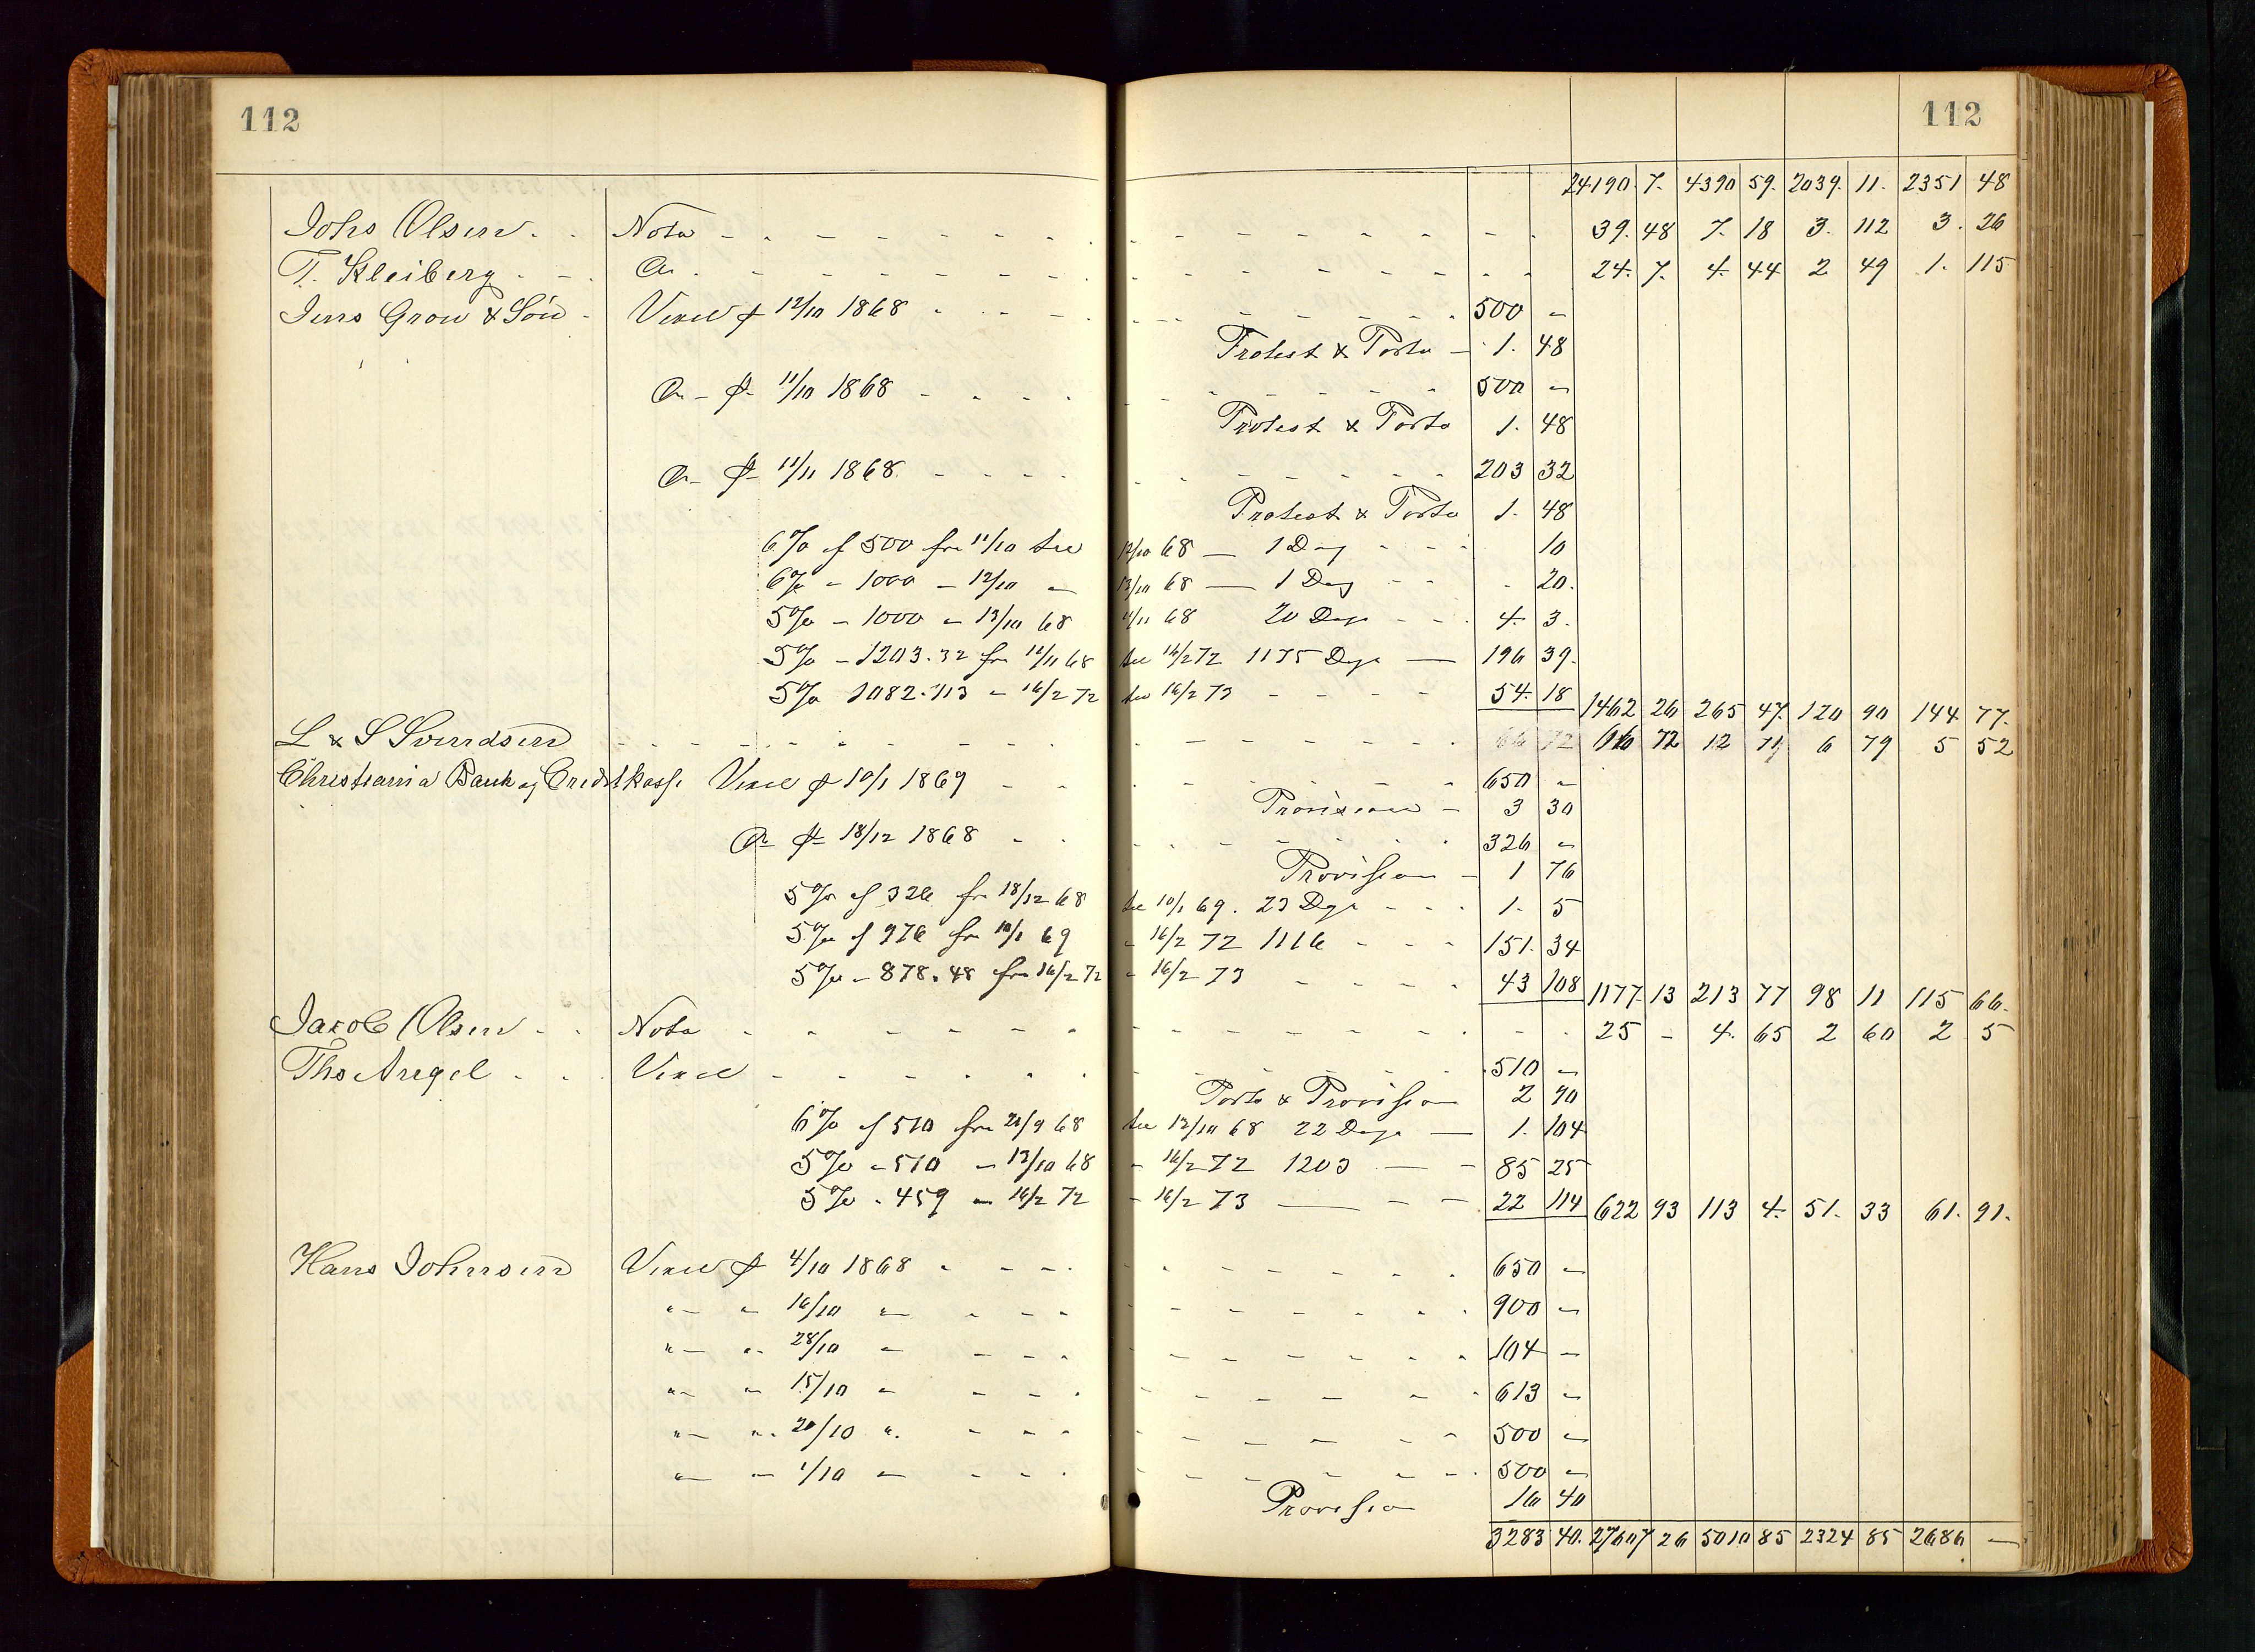 112 112
24190. 7. 4390 59. 2039. 11. 2351 48
Johs Olsen. Nota 39. 48 7. 18 3. 112 3. 26
T. Kleiberg Do. 24. 7. 4. 44 2 49 1. 115
Jens Grow & Søn Vexel p 12/10 1868 500 –
Protest & Porto 1. 48
Do – p 11/10 1868 500 –
Protest & Porto 1. 48
Do – p 11/11 1868 203 32
Protest & Porto 1. 48
6% af 500 fra 11/10 til 12/10 68 – 1 Dag 10
6% – 1000 – 12/10 – 13/10 68 – 1 Dag 20.
5% – 1000 – 13/10 68 /11 68 20 Dage 4. 3.
5% – 1203.32 fra 12/11 68 til 16/2 72 1175 Dage 196 39.
5% 1082.113 – 16/2 72 til 16/2 73 54. 18 1462 26 265 47. 120 90 144 77.
L & S Svendsen 66 72 66 72 12 71 6 79 5 52
Christiania Bank og Creditkasse Vexel p 10/1 1869 650 –
Provision – 3 30
Do p 18/12 1868 326 –
Provision – 1 76
5% af 326 fra 18/12 68 til 10/1 69. 23 Dage 1. 5
5% af 976 fra 10/1 69 – 16/2 72 1116 151. 34
5% – 878.48 fra 16/2 72 – 16/2 73 43 108 1177. 13 213 77 98 11 115 66.
Jacob Olsen Nota 25 – 4. 65 2 60 2 5
Ths Angel Vexel 510 –
Porto & Provision 2 90
6% af 510 fra 21/9 68 til 12/10 68 22 Dage – 1. 104
5% – 510 – 13/10 68 – 16/2 72 1203 – 85 25
5% – 459 – 16/2 72 – 16/2 73 22 114 622 93 113 4. 51. 33 61. 91.
Hans Johnsen Vexel p 4/10 1868 650 –
" – " 16/10 " 900 –
" – " 28/10 " 104 –
" – " 15/10 " 613 –
" – " 20/10 " 500 –
" – 1/10 " 500 –
Provision 16 40
3283 40. 27607 26 5010 85 2324 85 2686 –